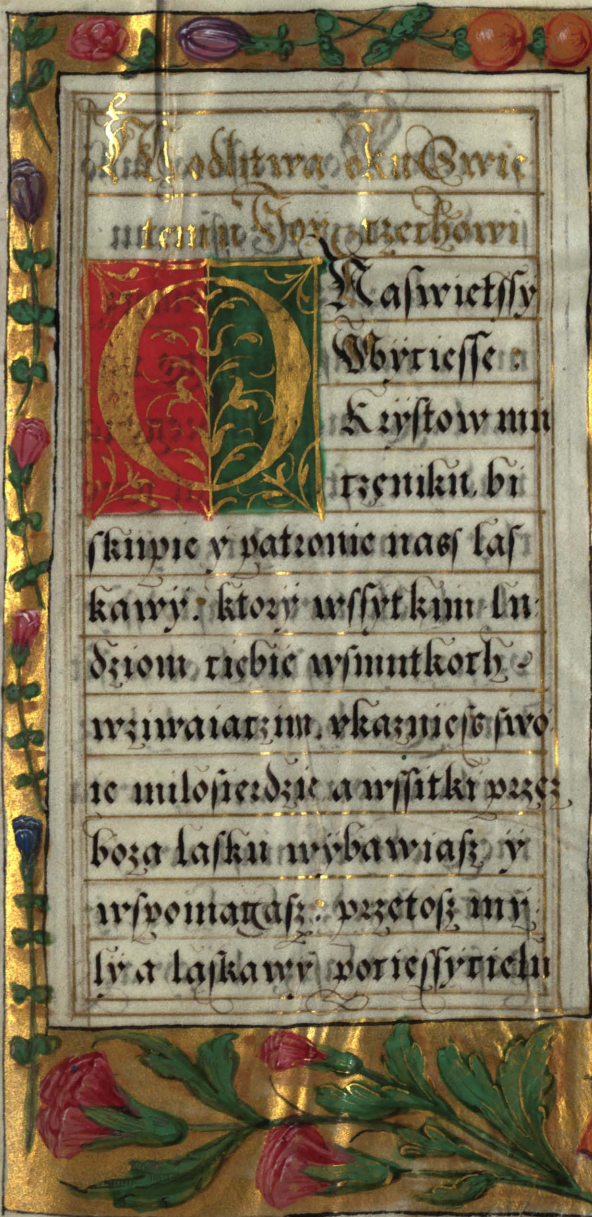 Modlitwa ku Swie
temu Woytzechowi
O Naswietssy
Woyciesse :
Krystow mu
tzeniku, bi
skupie y patronie nass las
kawy : ktory wssytkim lu
dziom ciebie wsmutkoch
wziwaiatzim, vkazuiess swo
ie milosierdzie a wssitki przez
boza lasku wybawiasz y
wspomagasz : przetosz my
ly a laskawy pociessycielu